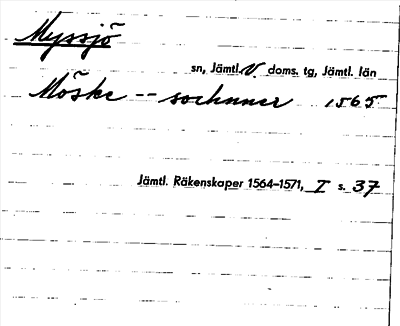 Myssjö
sn, Jämtl. V doms. tg, Jämtl. län
Möske -- sochnner 1565
Jämtl. Räkenskaper 1564-1571, I s. 37